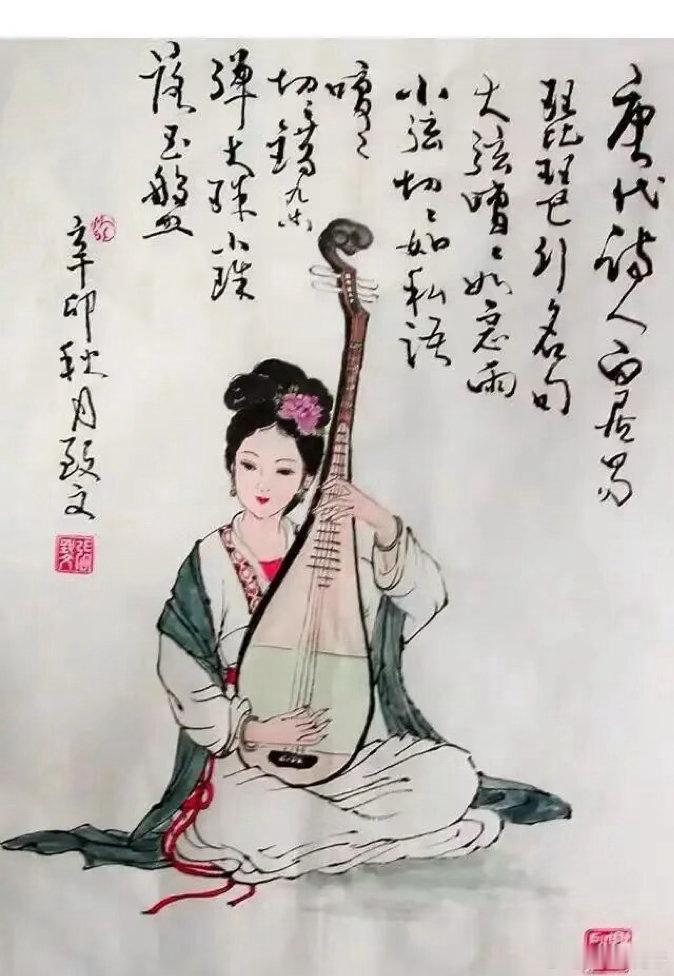 唐代诗人白居易
琵琶引名句
大弦嘈〻如急雨
小弦切〻如私语
嘈〻
切〻错杂
弹大珠小珠
落玉盘
辛卯秋月致文